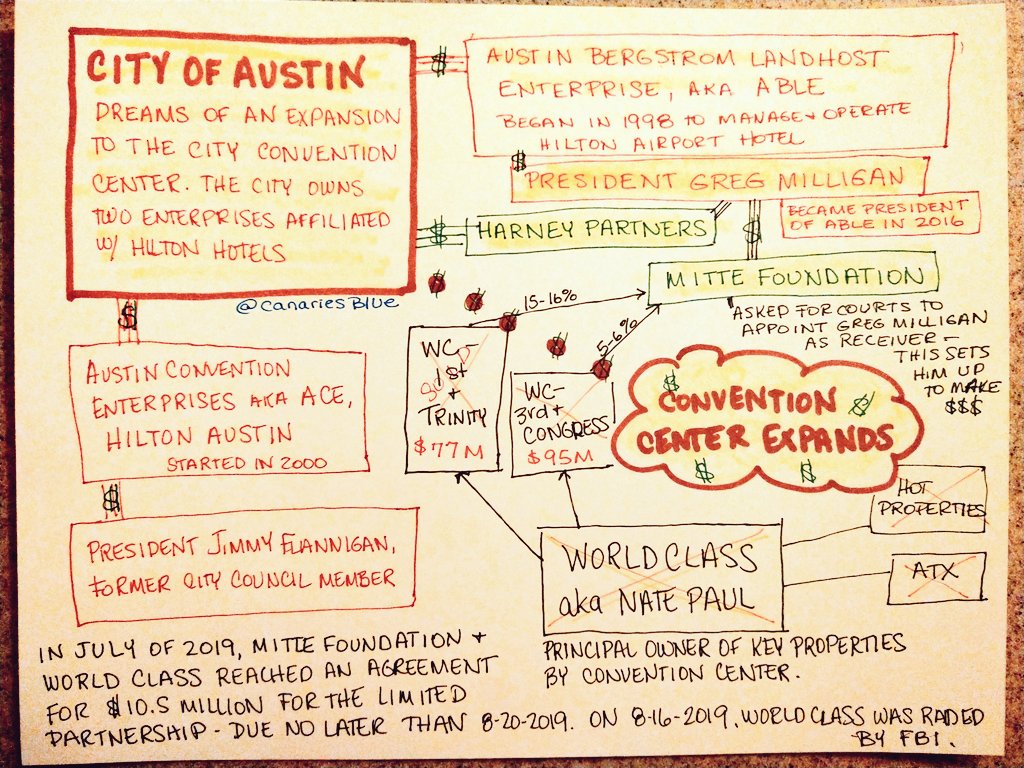 CITY OF AUSTIN
DREAMS OF AN EXPANSION
TO THE CITY CONVENTION
CENTER. THE CITY OWNS
TWO ENTERPRISES AFFILIATED
W/ HILTON HOTELS
$
AUSTIN BERGSTROM LANDHOST
ENTERPRISE, AKA ABLE
BEGAN IN 1998 TO MANAGE + OPERATE
HILTON AIRPORT HOTEL
$
PRESIDENT GREG MILLIGAN
BECAME PRESIDENT
OF ABLE IN 2016
$
HARNEY PARTNERS
$
MITTE FOUNDATION
ASKED FOR COURTS TO
APPOINT GREG MILLIGAN
AS RECEIVER –
THIS SETS
HIM UP
TO MAKE
$$$
@canariesBlue
$
AUSTIN CONVENTION
ENTERPRISES AKA ACE,
HILTON AUSTIN
STARTED IN 2000
$
PRESIDENT JIMMY FLANNIGAN,
FORMER CITY COUNCIL MEMBER
15-16%
5-6%
WC-
1st
+
TRINITY
$77M
WC-
3rd +
CONGRESS
$95M
$
CONVENTION $
CENTER EXPANDS
$ $
HOT
PROPERTIES
ATX
WORLD CLASS
aka NATE PAUL
PRINCIPAL OWNER OF KEY PROPERTIES
BY CONVENTION CENTER.
IN JULY OF 2019, MITTE FOUNDATION +
WORLD CLASS REACHED AN AGREEMENT
FOR $10.5 MILLION FOR THE LIMITED
PARTNERSHIP - DUE NO LATER THAN 8-20-2019. ON 8-16-2019, WORLD CLASS WAS RAIDED
BY FBI.